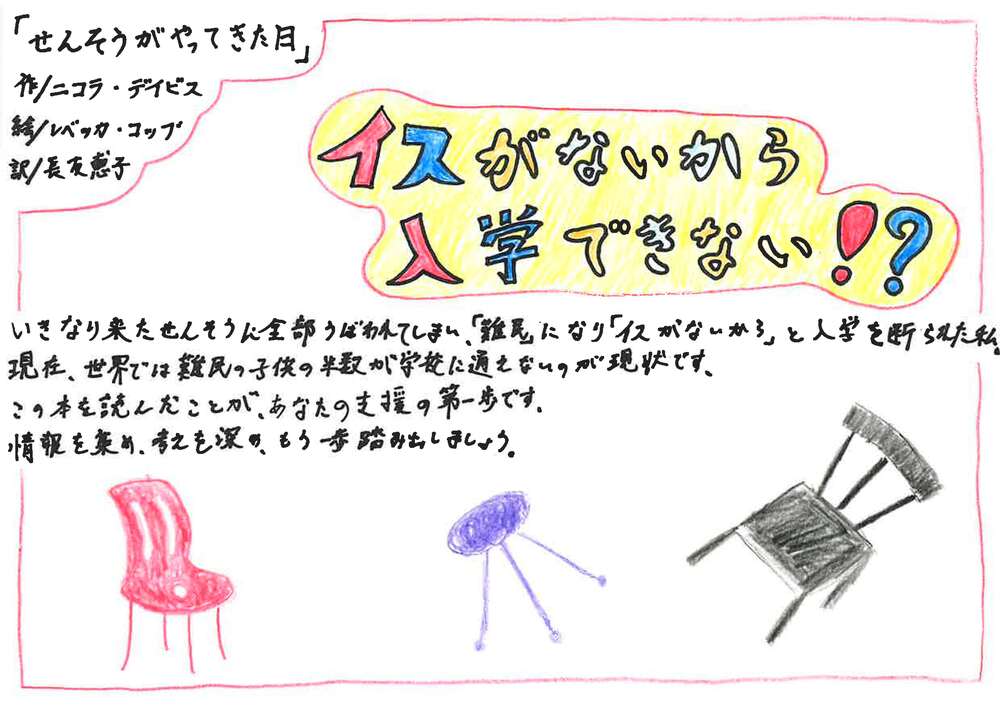 「せんそうがやってきた日」
作/ニコラ・デイビス
絵/レベッカ・コッブ
訳/長友恵子
イスがないから
入学できない!?
いきなり来たせんそうに全部うばわれてしまい、「難民」になり「イスがないから」と入学を断られた私。
現在、世界では難民の子供の半数が学校に通えないのが現状です。
この本を読んだことが、あなたの支援の第一歩です。
情報を集め、考えを深め、もう一歩踏み出しましょう。